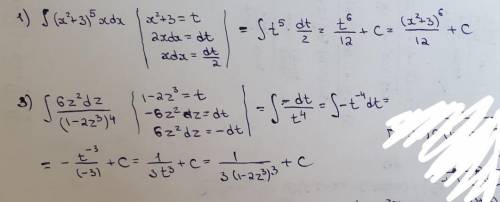 1) ∫(x²+3)⁵xdx | x²+3=t | 2xdx=dt | xdx=dt/2 | = ∫t⁵·dt/2 = t⁶/12 + C = (x²+3)⁶/12 + C
3) ∫6z²dz/(1-2z³)⁴ | 1-2z³=t | -6z²dz=dt | 6z²dz=-dt | = ∫-dt/t⁴ = ∫-t⁻⁴dt=
= - t⁻³/(-3) + C = 1/3t³ + C = 1/3(1-2z³)³ + C